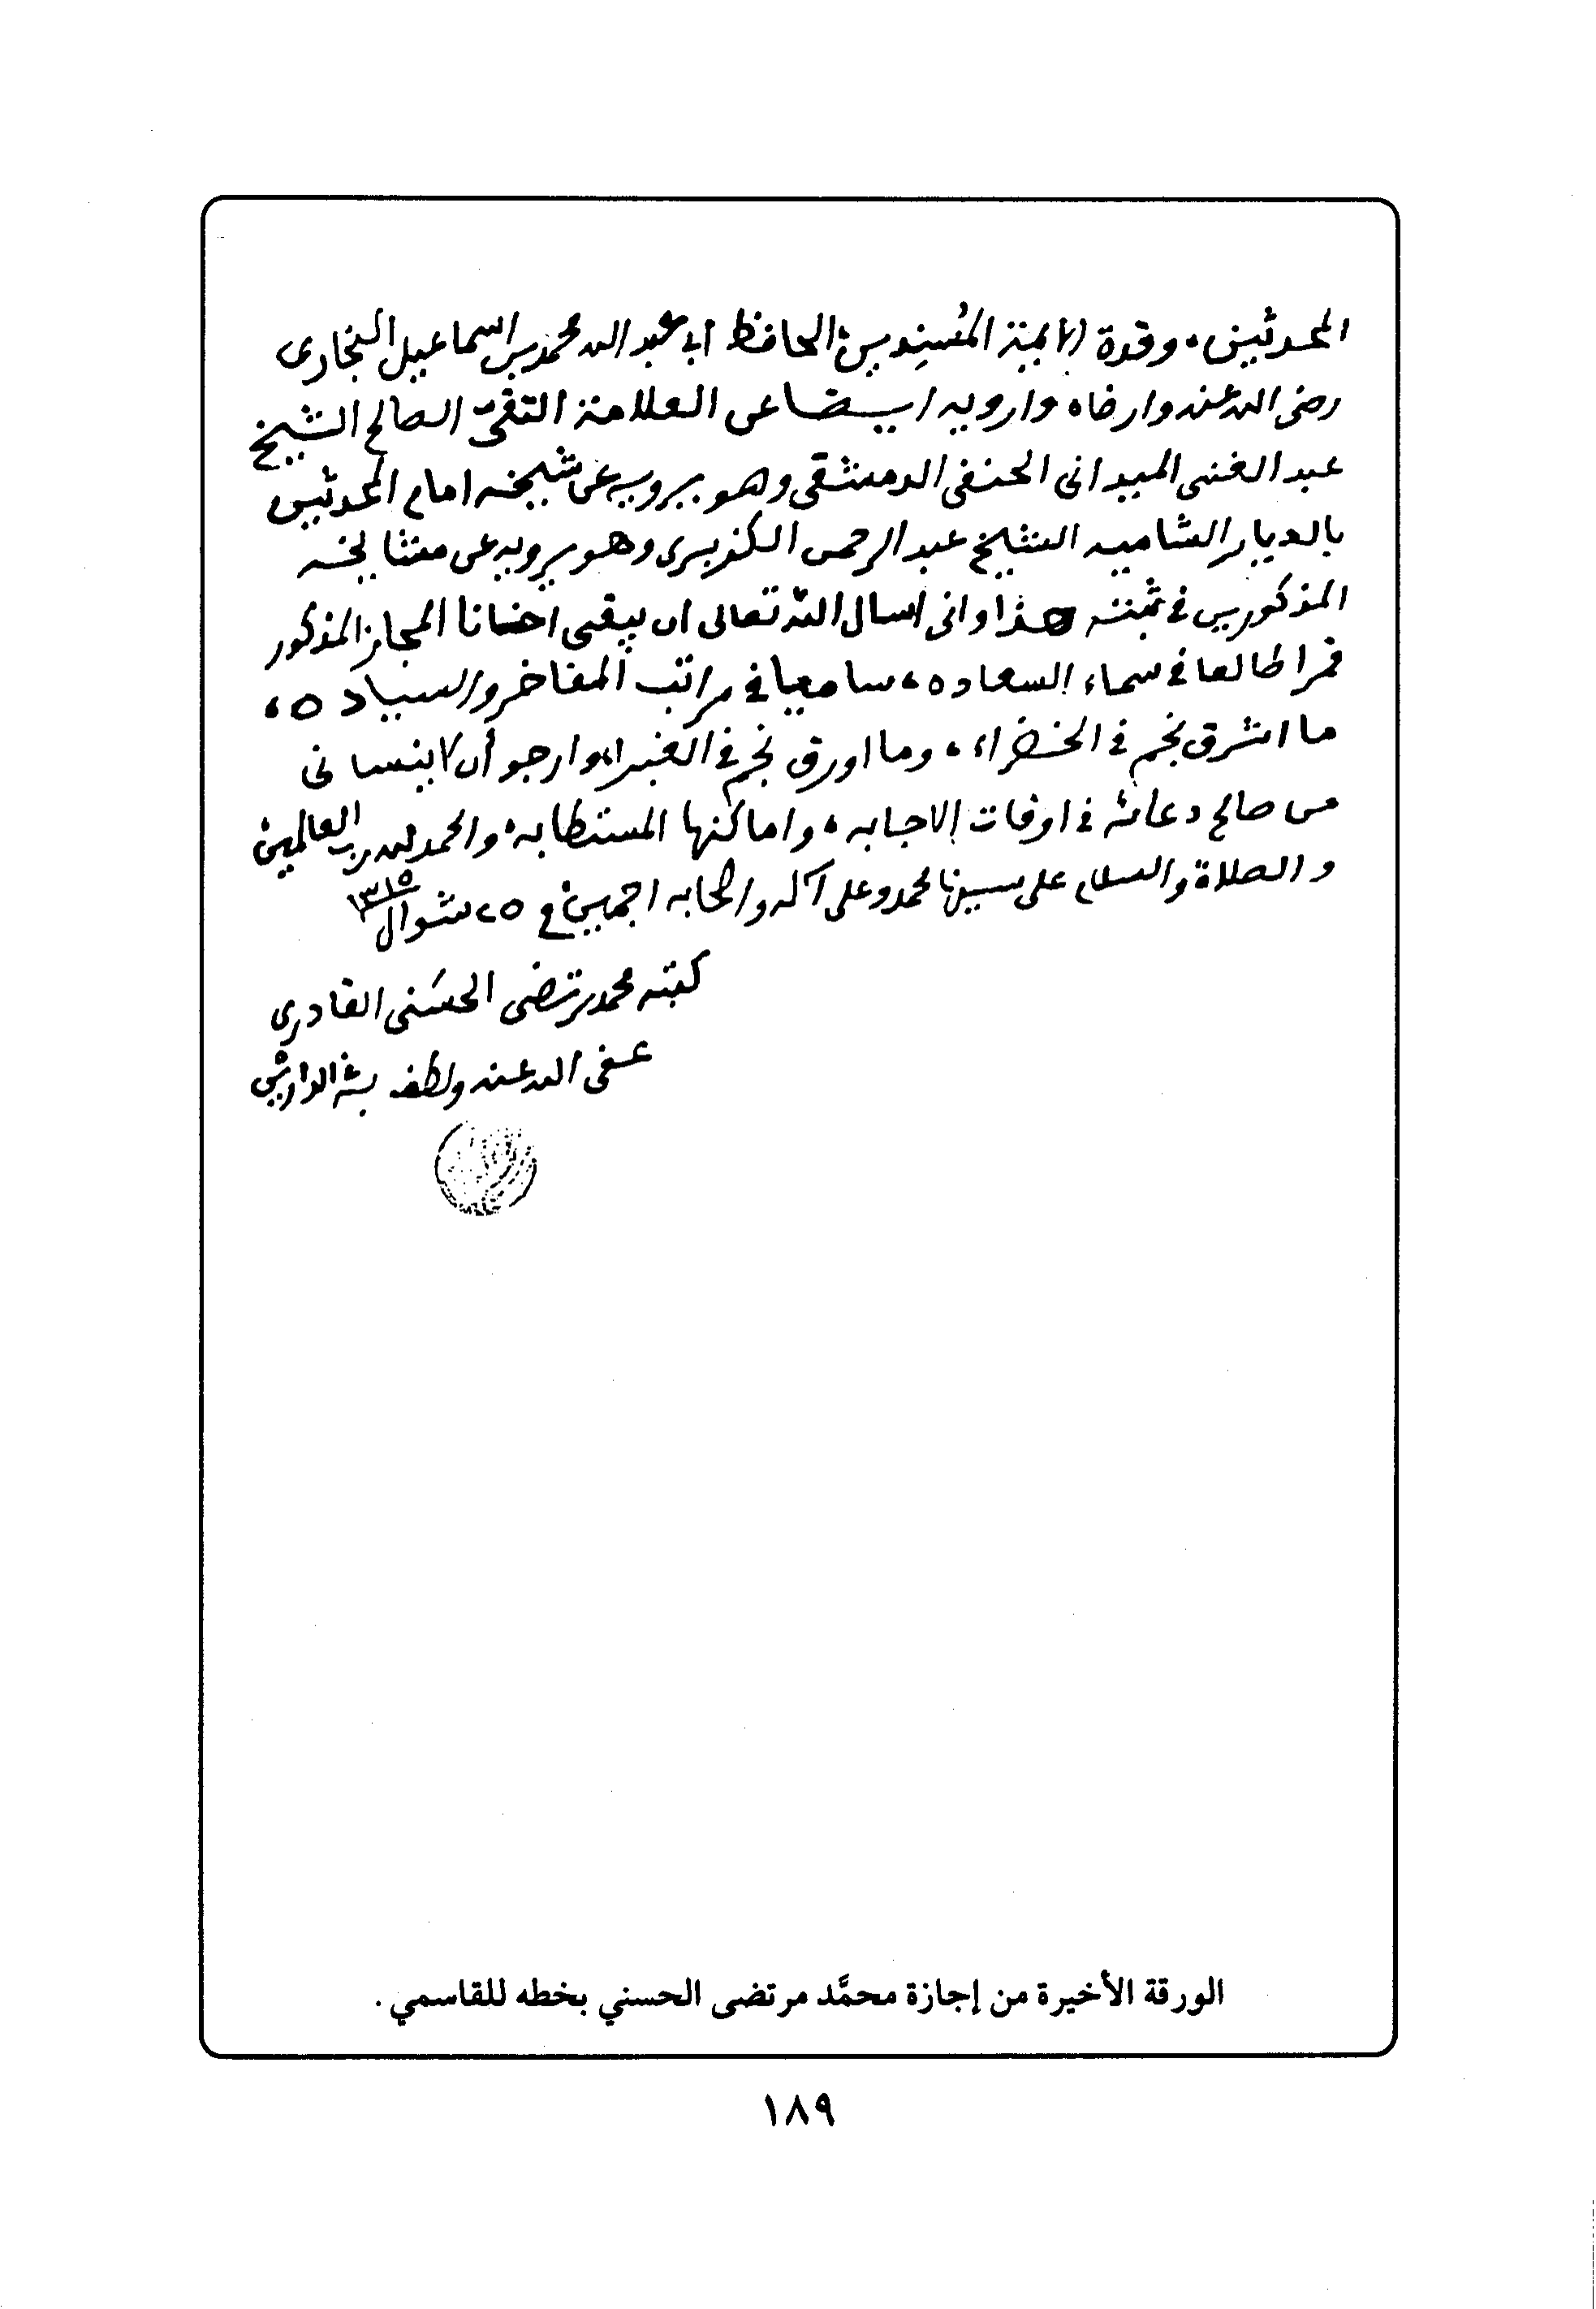 المحدثين، وقدوة الايمة المُسنِدين، الحافظ ابى عبد الله محمد بن اسماعيل البخارى
رضى الله عنه وارضاه وارويه ايضا عن العلامة التقىّ الصالح الشيخ
عبد الغنى الميدانى الحنفى الدمشقى وهو يرويه عن شيخه امام المحدثين
بالديار الشاميه الشيخ عبد الرحمن الكزبرى وهو يرويه عن مشايخه
المذكورين فى ثبته هذا وانى اسال الله تعالى ان يبقى اخانا المجاز المذكور
قمرا طالعا فى سماء السعاده، ساميا فى مراتب المفاخر والسياده،
ما اشرق نجم فى الخضراء، وما اورق نجم فى الغبراء وارجو أن لا ينسانى
من صالح دعائه فى اوقات الاجابه، واماكنها المستطابه، والحمد لله رب العالمين
والصلاة والسلام على سيدنا محمد وعلى آله واصحابه اجمعين فى ٢٥ شوال ١٣١٥
كتبه محمد مرتضى الحسَنى القادرى
عفى الله عنه ولطف به فى الدارين
الورقة الأخيرة من إجازة محمَّد مرتضى الحسني بخطه للقاسمي .
١٨٩